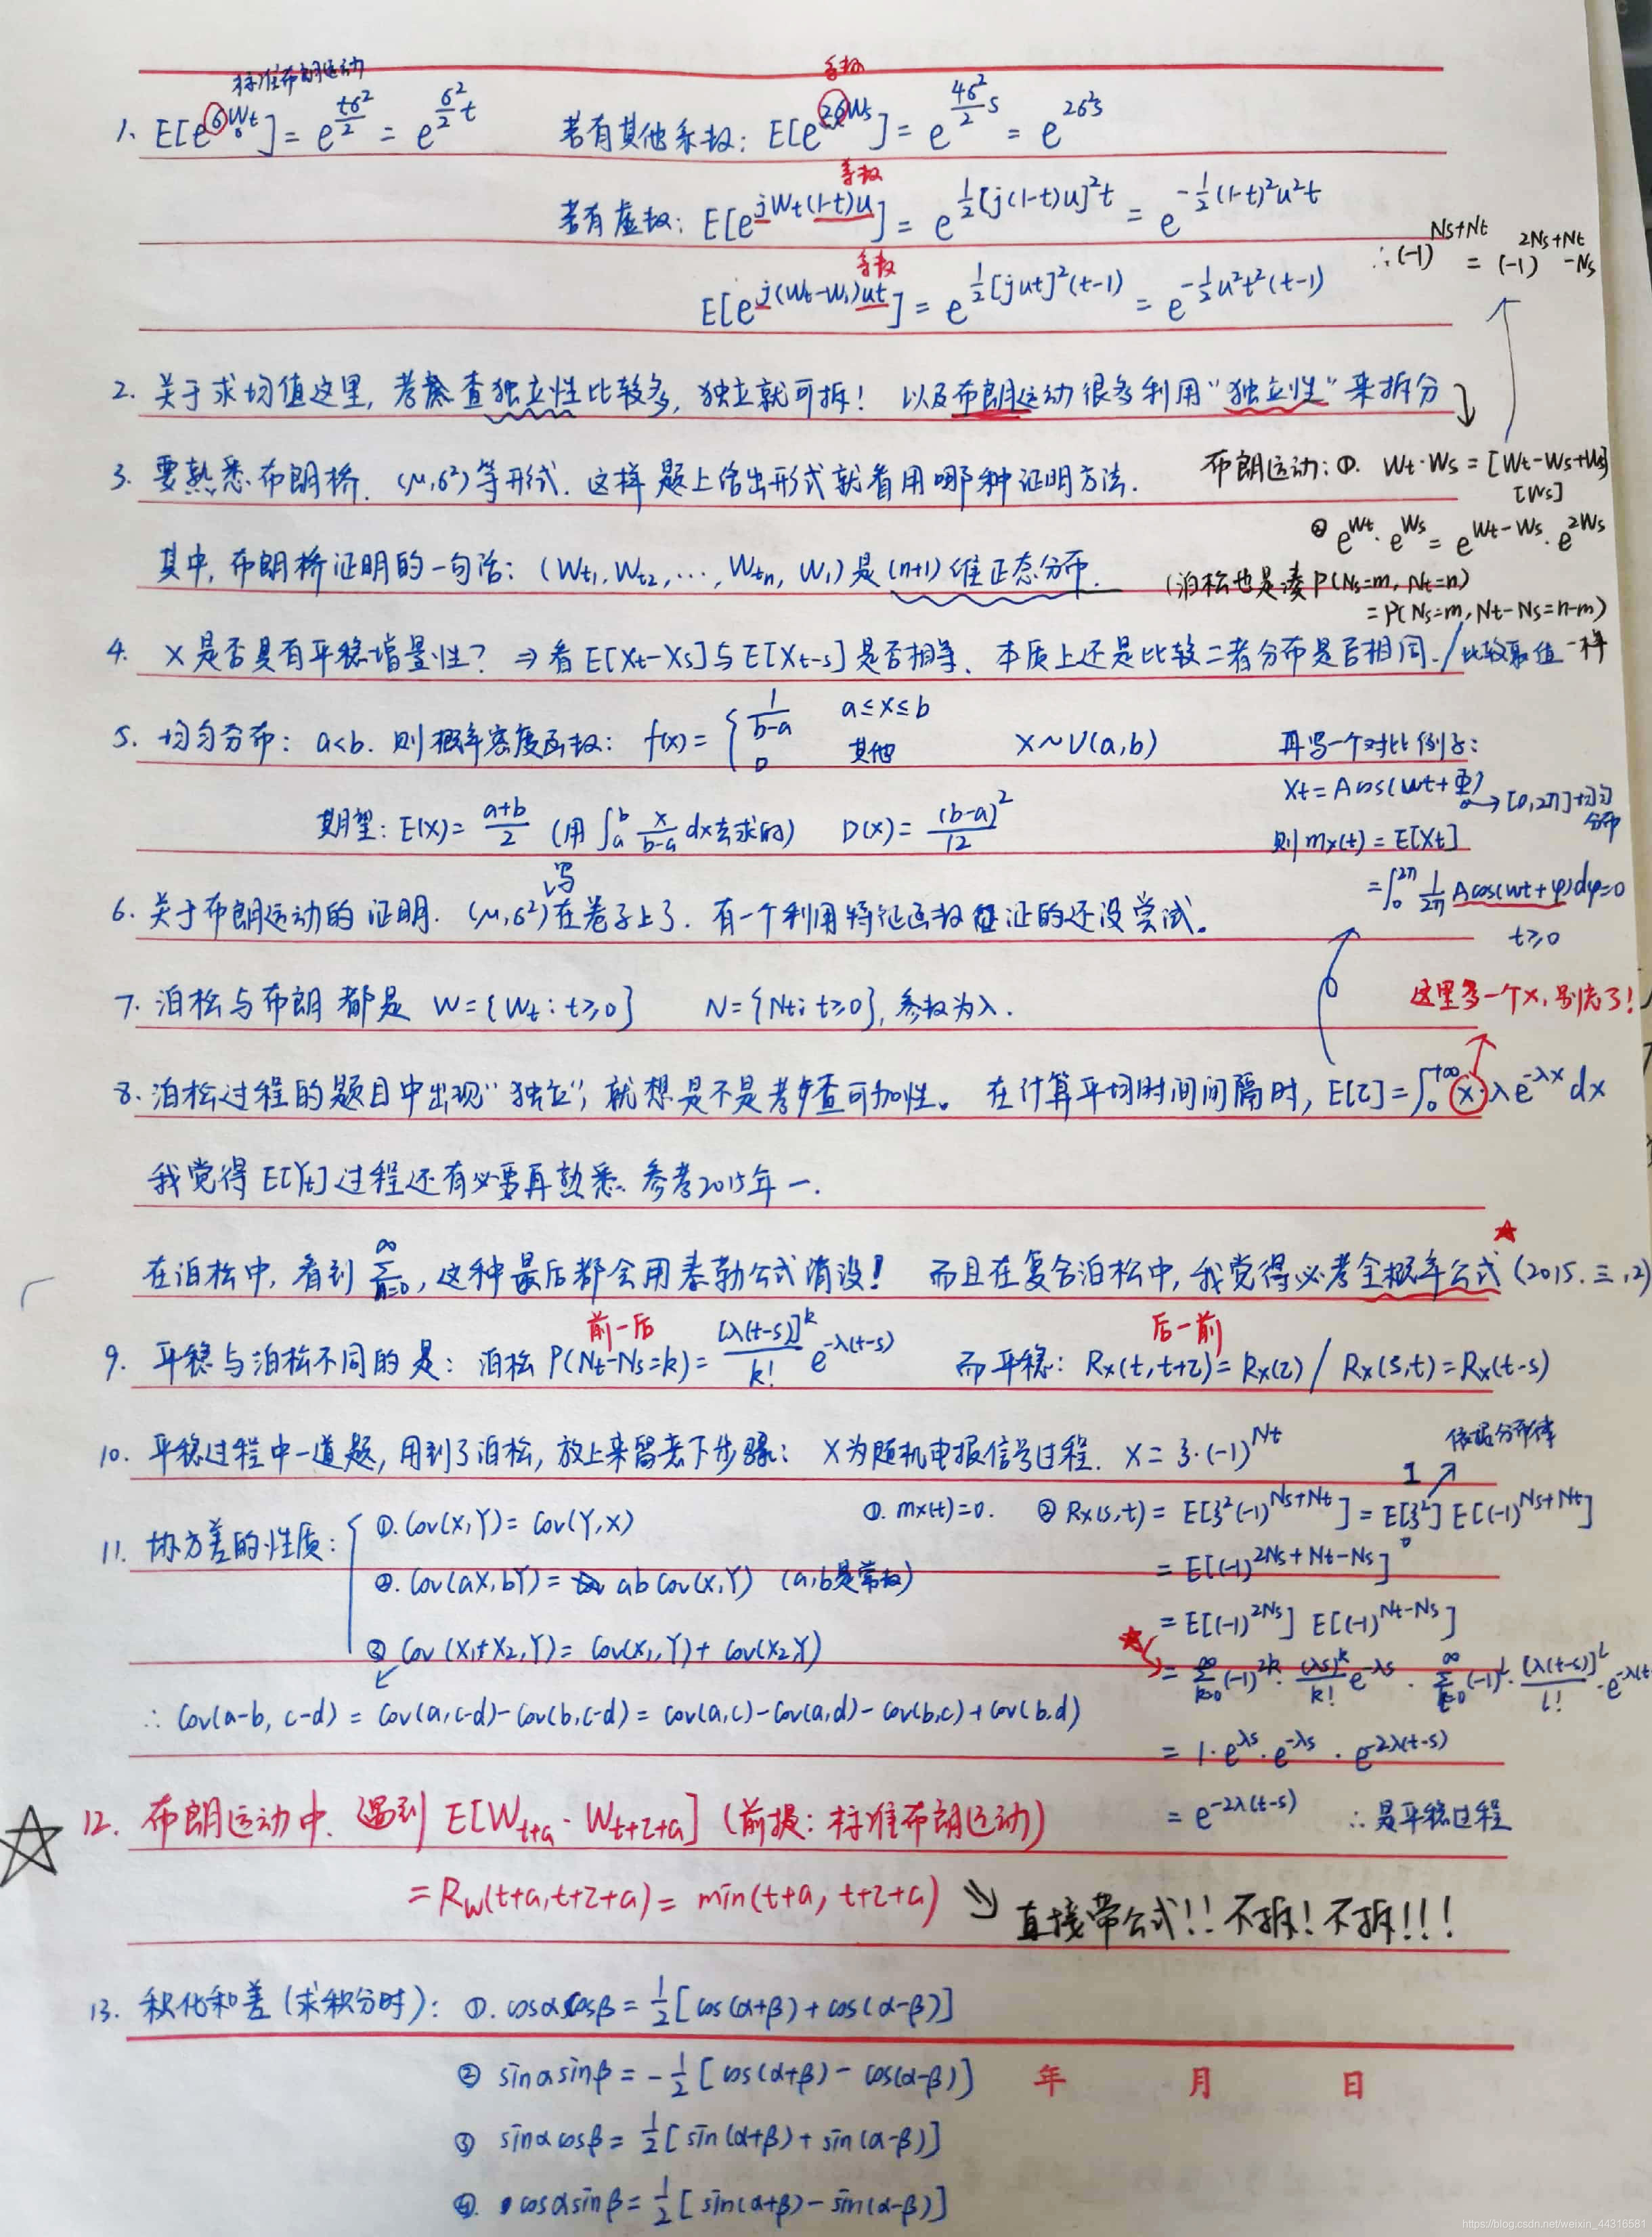 标准布朗运动
系数
1. E[e^{σW_t}] = e^{tσ²/2} = e^{σ²/2 t} 若有其他系数: E[e^{2σW_s}] = e^{4σ²/2 s} = e^{2σ²s}
系数
若有虚数: E[e^{jW_t(1-t)u}] = e^{1/2[j(1-t)u]²t} = e^{-1/2(1-t)²u²t}
∴(-1)^{Ns+Nt} = (-1)^{2Ns+Nt-Ns}
系数
E[e^{j(W_t-W_1)ut}] = e^{1/2[jut]²(t-1)} = e^{-1/2u²t²(t-1)}
2. 关于求均值这里, 考查独立性比较多, 独立就可拆! 以及布朗运动很多利用“独立性”来拆分
3. 要熟悉布朗桥. (μ,σ²)等形式. 这样题上给出形式就看用哪种证明方法.
布朗运动: ①. Wt·Ws = [Wt-Ws+Ws]
[Ws]
② e^{Wt}·e^{Ws} = e^{Wt-Ws}·e^{2Ws}
其中, 布朗桥证明的一句话: (Wt₁, Wt₂, ···, Wtn, W₁)是(n+1)维正态分布.
(泊松也是凑P(Ns=m, Nt=n)
= P(Ns=m, Nt-Ns=n-m)
4. X是否具有平稳增量性? ⇒ 看E[Xt-Xs]与E[Xt-s]是否相等. 本质上还是比较二者分布是否相同./比较取值一样
5. 均匀分布: a<b. 则概率密度函数: f(x) = { 1/(b-a) a≤x≤b
0 其他 X~U(a,b)
期望: E(X) = (a+b)/2 (用∫_a^b x/(b-a) dx去求的) D(X) = (b-a)²/12
再写一个对比例子:
Xt = Acos(wt+Φ) → [0,2π]均匀
分布
则mx(t) = E[Xt]
= ∫_0^{2π} 1/2π Acos(wt+φ)dφ=0
t≥0
写
6. 关于布朗运动的证明. (μ,σ²)在卷子上了. 有一个利用特征函数证的还没尝试。
7. 泊松与布朗都是 W={Wt: t≥0} N={Nt: t≥0}, 参数为λ.
这里多一个x, 别忘了!
8. 泊松过程的题目中出现“独立”, 就想是不是考查可加性。 在计算平均时间间隔时, E[τ] = ∫_0^{+∞} x·λe^{-λx} dx
我觉得E[Yt]过程还有必要再熟悉. 参考2015年一.
在泊松中, 看到∑_{n=0}^∞, 这种最后都会用泰勒公式消没! 而且在复合泊松中, 我觉得必考全概率公式★(2015.三,2)
前-后
后-前
9. 平稳与泊松不同的是: 泊松 P(Nt-Ns=k) = [λ(t-s)]^k/k! e^{-λ(t-s)} 而平稳: Rx(t, t+τ) = Rx(τ) / Rx(s,t) = Rx(t-s)
10. 平稳过程中一道题, 用到了泊松, 放上来留意下步骤: X为随机电报信号过程. X = ξ·(-1)^{Nt}
依据分布律
1
①. mx(t)=0. ② Rx(s,t) = E[ξ²(-1)^{Ns+Nt}] = E[ξ²] E[(-1)^{Ns+Nt}]
= E[(-1)^{2Ns+Nt-Ns}]
= E[(-1)^{2Ns}] E[(-1)^{Nt-Ns}]
★ = ∑_{k=0}^∞ (-1)^{2k}·(λs)^k/k! e^{-λs} · ∑_{l=0}^∞ (-1)^l·[λ(t-s)]^l/l! ·e^{-λ(t
= 1·e^{λs}·e^{-λs} · e^{-2λ(t-s)}
= e^{-2λ(t-s)} ∴是平稳过程
11. 协方差的性质: { ①. Cov(X,Y) = Cov(Y,X)
②. Cov(aX,bY) = ab Cov(X,Y) (a,b是常数)
③ Cov(X₁+X₂,Y) = Cov(X₁,Y) + Cov(X₂,Y)
∴ Cov(a-b, c-d) = Cov(a,c-d) - Cov(b,c-d) = Cov(a,c) - Cov(a,d) - Cov(b,c) + Cov(b,d)
12. 布朗运动中, 遇到 E[W_{t+a}·W_{t+τ+a}] (前提: 标准布朗运动)
= R_W(t+a, t+τ+a) = min(t+a, t+τ+a) 直接带公式!! 不拆! 不拆!!!
13. 积化和差(求积分时): ①. cosαcosβ = 1/2[cos(α+β) + cos(α-β)]
② sinαsinβ = -1/2[cos(α+β) - cos(α-β)]
年 月 日
③ sinαcosβ = 1/2[sin(α+β) + sin(α-β)]
④. cosαsinβ = 1/2[sin(α+β) - sin(α-β)]
https://blog.csdn.net/weixin_44316581